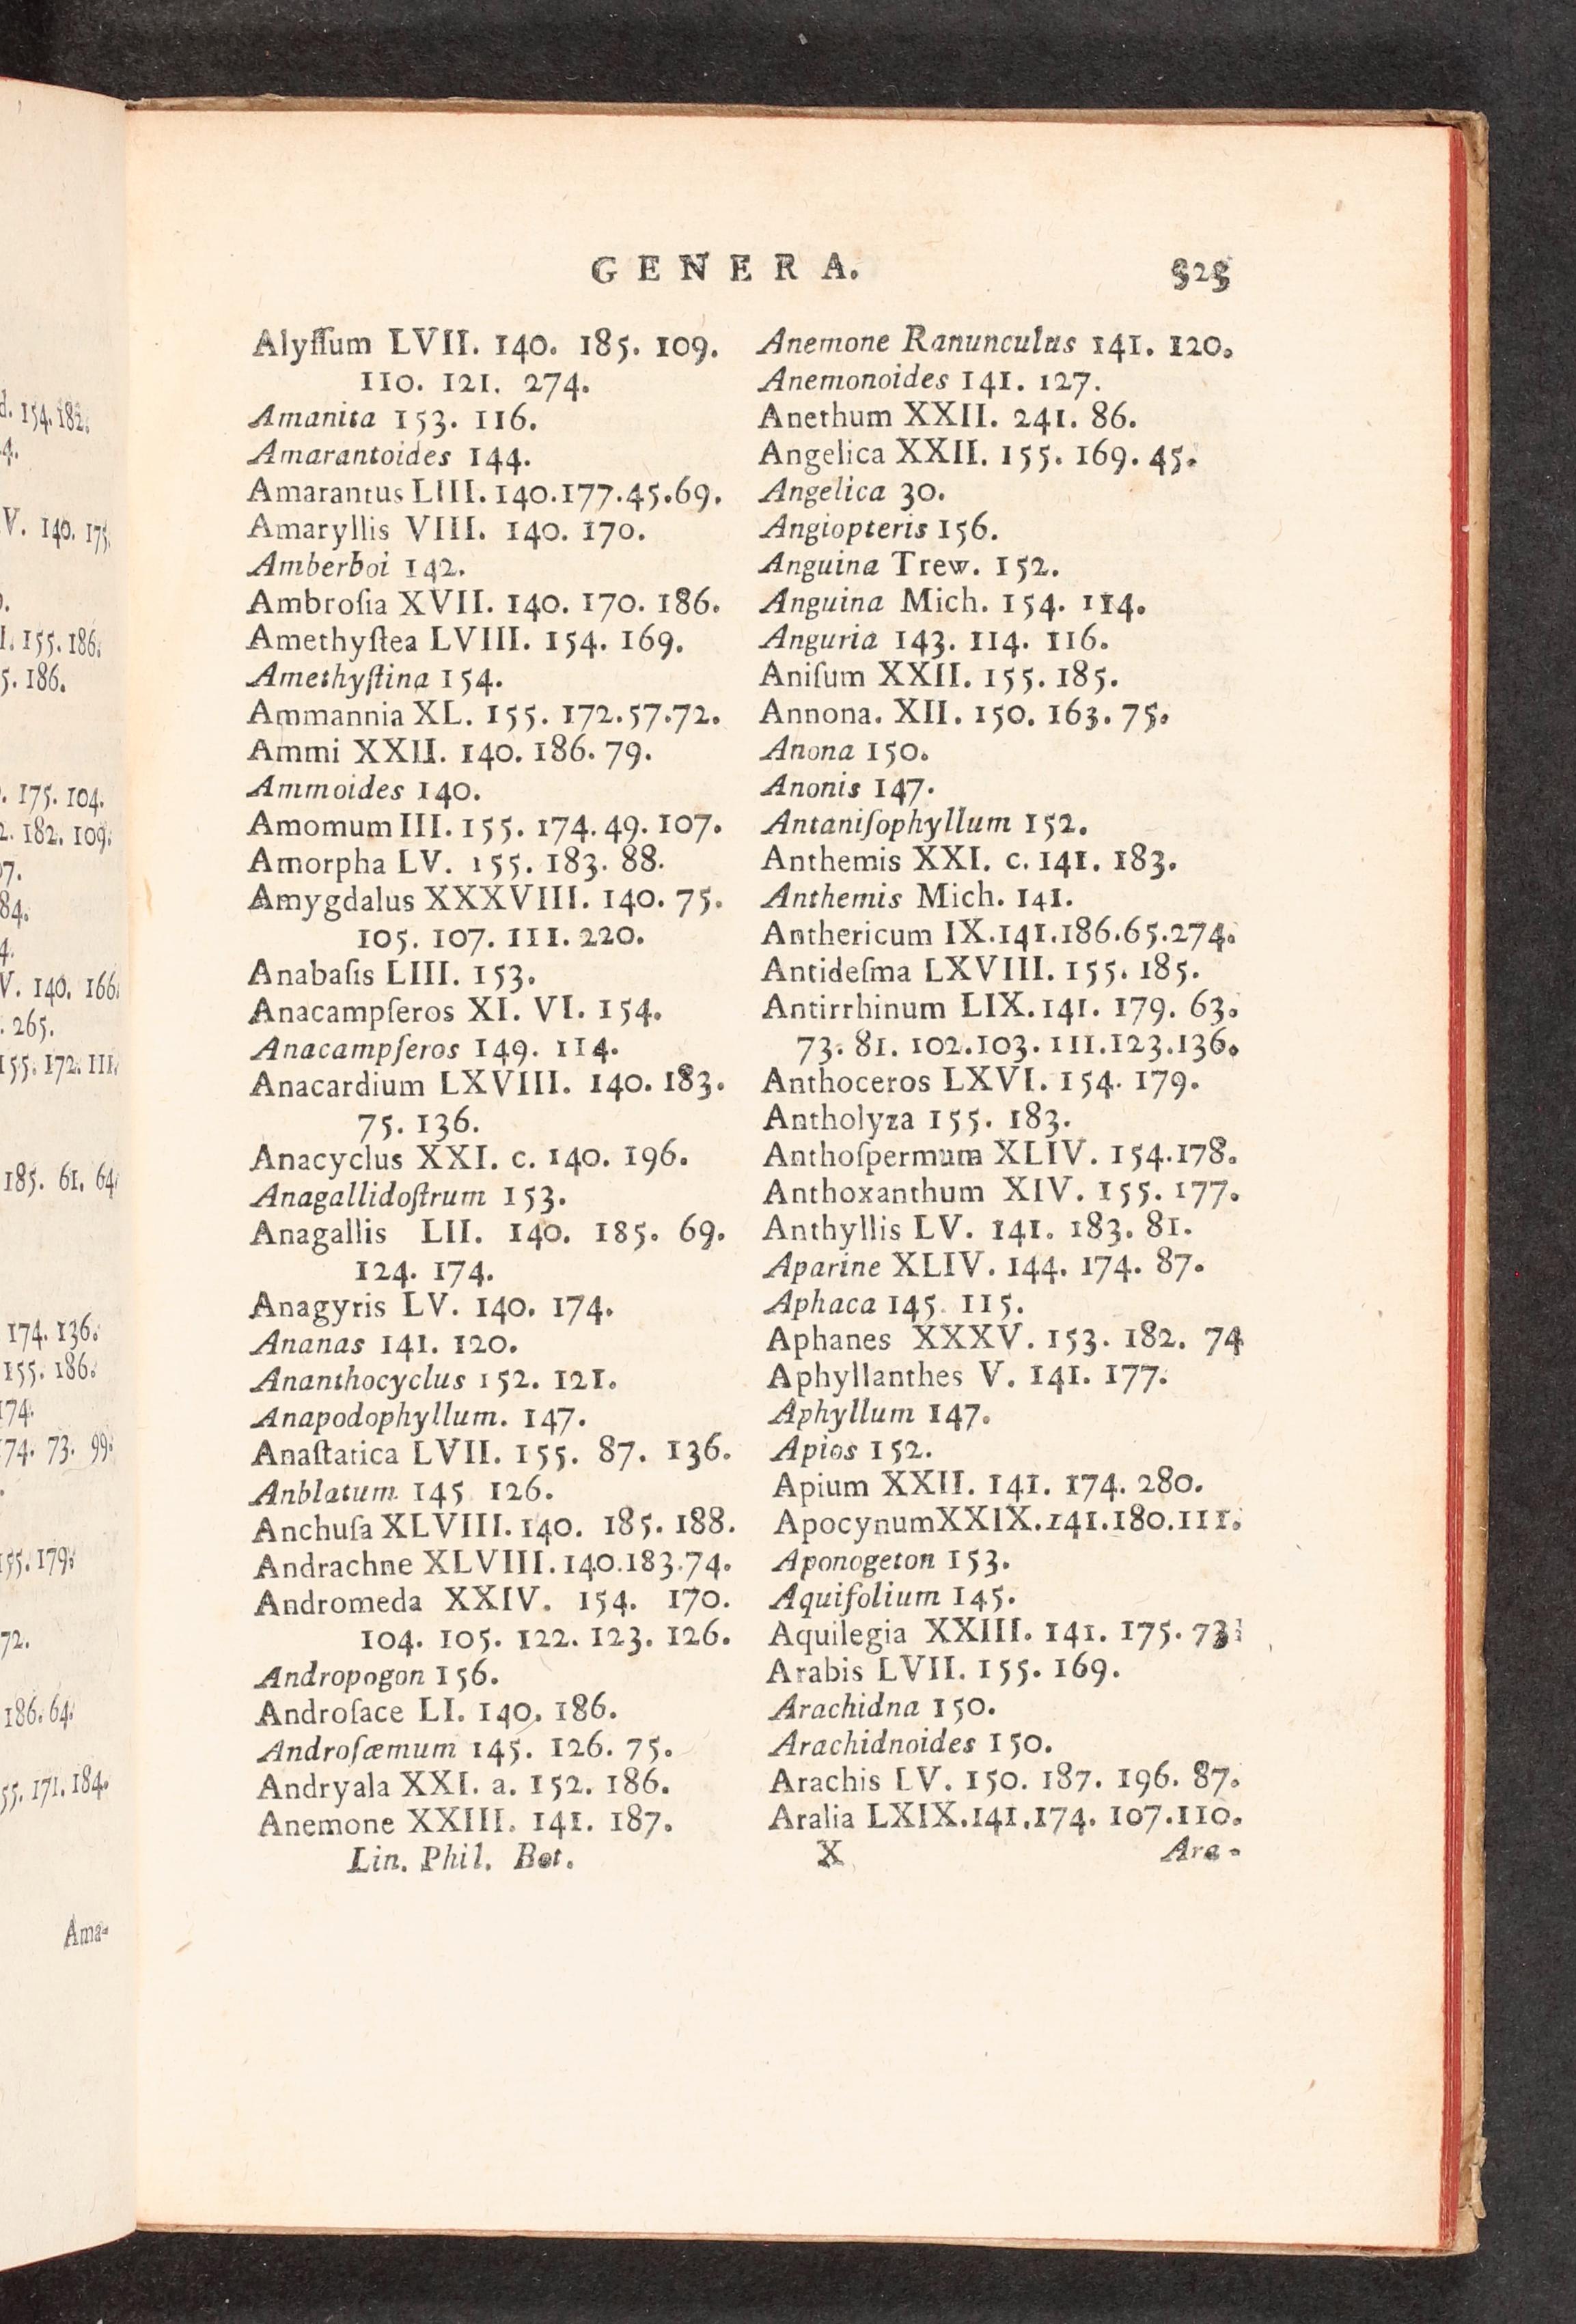 GENERA. 325
Alyſſum LVII. 140. 185. 109.
110. 121. 274.
Amanita 153. 116.
Amarantoides 144.
Amarantus LIII. 140.177.45.69.
Amaryllis VIII. 140. 170.
Amberboi 142.
Ambroſia XVII. 140. 170. 186.
Amethyſtea LVIII. 154. 169.
Amethyſtina 154.
Ammannia XL. 155. 172.57.72.
Ammi XXII. 140. 186. 79.
Ammoides 140.
Amomum III. 155. 174. 49. 107.
Amorpha LV. 155. 183. 88.
Amygdalus XXXVIII. 140. 75.
105. 107. 111. 220.
Anabaſis LIII. 153.
Anacampſeros XI. VI. 154.
Anacampſeros 149. 114.
Anacardium LXVIII. 140. 183.
75. 136.
Anacyclus XXI. c. 140. 196.
Anagallidoſtrum 153.
Anagallis LII. 140. 185. 69.
124. 174.
Anagyris LV. 140. 174.
Ananas 141. 120.
Ananthocyclus 152. 121.
Anapodophyllum. 147.
Anaſtatica LVII. 155. 87. 136.
Anblatum 145 126.
Anchuſa XLVIII. 140. 185. 188.
Andrachne XLVIII. 140.183.74.
Andromeda XXIV. 154. 170.
104. 105. 122. 123. 126.
Andropogon 156.
Androſace LI. 140. 186.
Androſæmum 145. 126. 75.
Andryala XXI. a. 152. 186.
Anemone XXIII. 141. 187.
Lin. Phil. Bot.
Anemone Ranunculus 141. 120.
Anemonoides 141. 127.
Anethum XXII. 241. 86.
Angelica XXII. 155. 169. 45.
Angelica 30.
Angiopteris 156.
Anguina Trew. 152.
Anguina Mich. 154. 114.
Anguria 143. 114. 116.
Aniſum XXII. 155. 185.
Annona. XII. 150. 163. 75.
Anona 150.
Anonis 147.
Antaniſophyllum 152.
Anthemis XXI. c. 141. 183.
Anthemis Mich. 141.
Anthericum IX.141.186.65.274.
Antideſma LXVIII. 155. 185.
Antirrhinum LIX. 141. 179. 63.
73. 81. 102.103. 111.123.136.
Anthoceros LXVI. 154. 179.
Antholyza 155. 183.
Anthoſpermum XLIV. 154.178.
Anthoxanthum XIV. 155. 177.
Anthyllis LV. 141. 183. 81.
Aparine XLIV. 144. 174. 87.
Aphaca 145. 115.
Aphanes XXXV. 153. 182. 74
Aphyllanthes V. 141. 177.
Aphyllum 147.
Apios 152.
Apium XXII. 141. 174. 280.
ApocynumXXIX.141.180.111.
Aponogeton 153.
Aquifolium 145.
Aquilegia XXIII. 141. 175. 73.
Arabis LVII. 155. 169.
Arachidna 150.
Arachidnoides 150.
Arachis LV. 150. 187. 196. 87.
Aralia LXIX.141.174. 107.110.
X Ara-